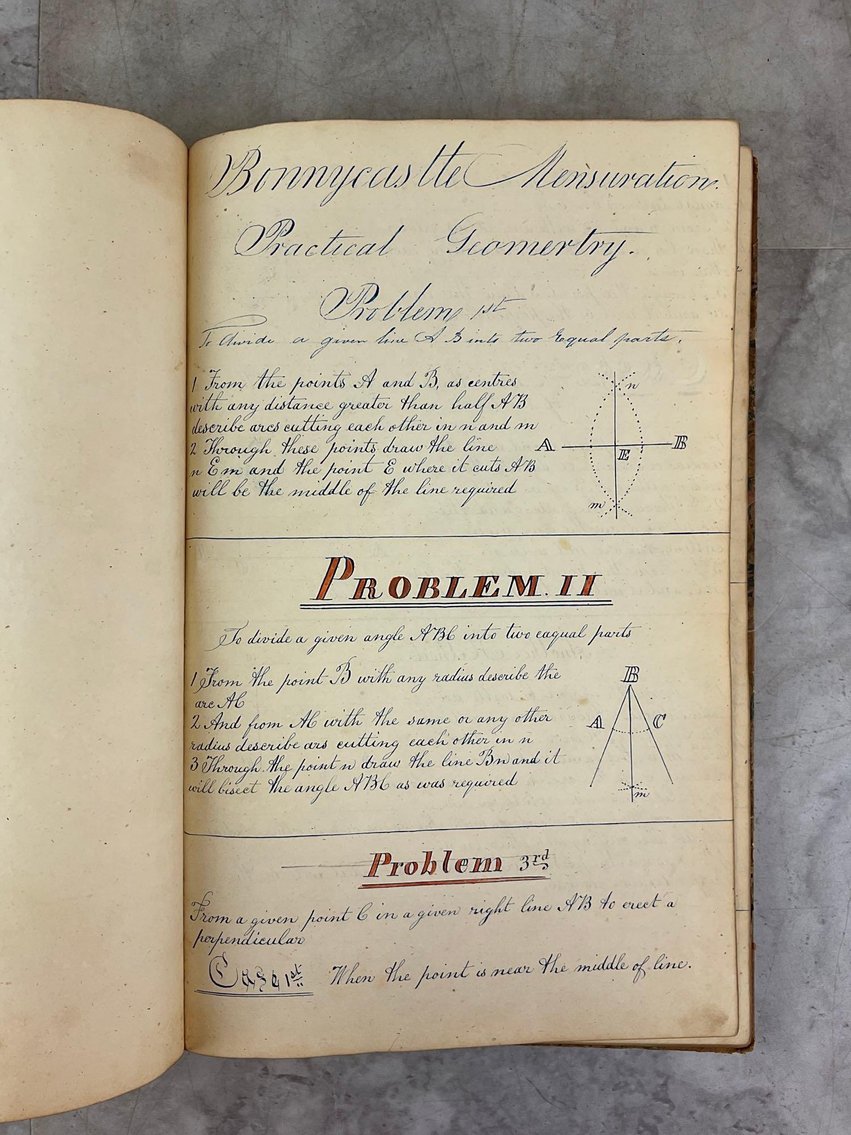 Bonnycastle Mensuration.
Practical Geomertry.
Problem 1st
To divide a given line A B into two Equal parts.
1 From the points A and B, as centres
with any distance greater than half AB
describe arcs cutting each other in n and m
2 Through these points draw the line
n E m and the point E where it cuts AB
will be the middle of the line required
n
A
B
E
m
PROBLEM. II
To divide a given angle ABC into two eaqual parts
1 From the point B with any radius describe the
arc AC
2 And from AC with the same or any other
radius describe ars cutting each other in n
3 Through the point n draw the line Bn and it
will bisect the angle ABC as was requiered
B
A
C
m
Problem 3rd
From a given point C in a given right line AB to erect a
perpendicular
Case 1st When the point is near the middle of line.